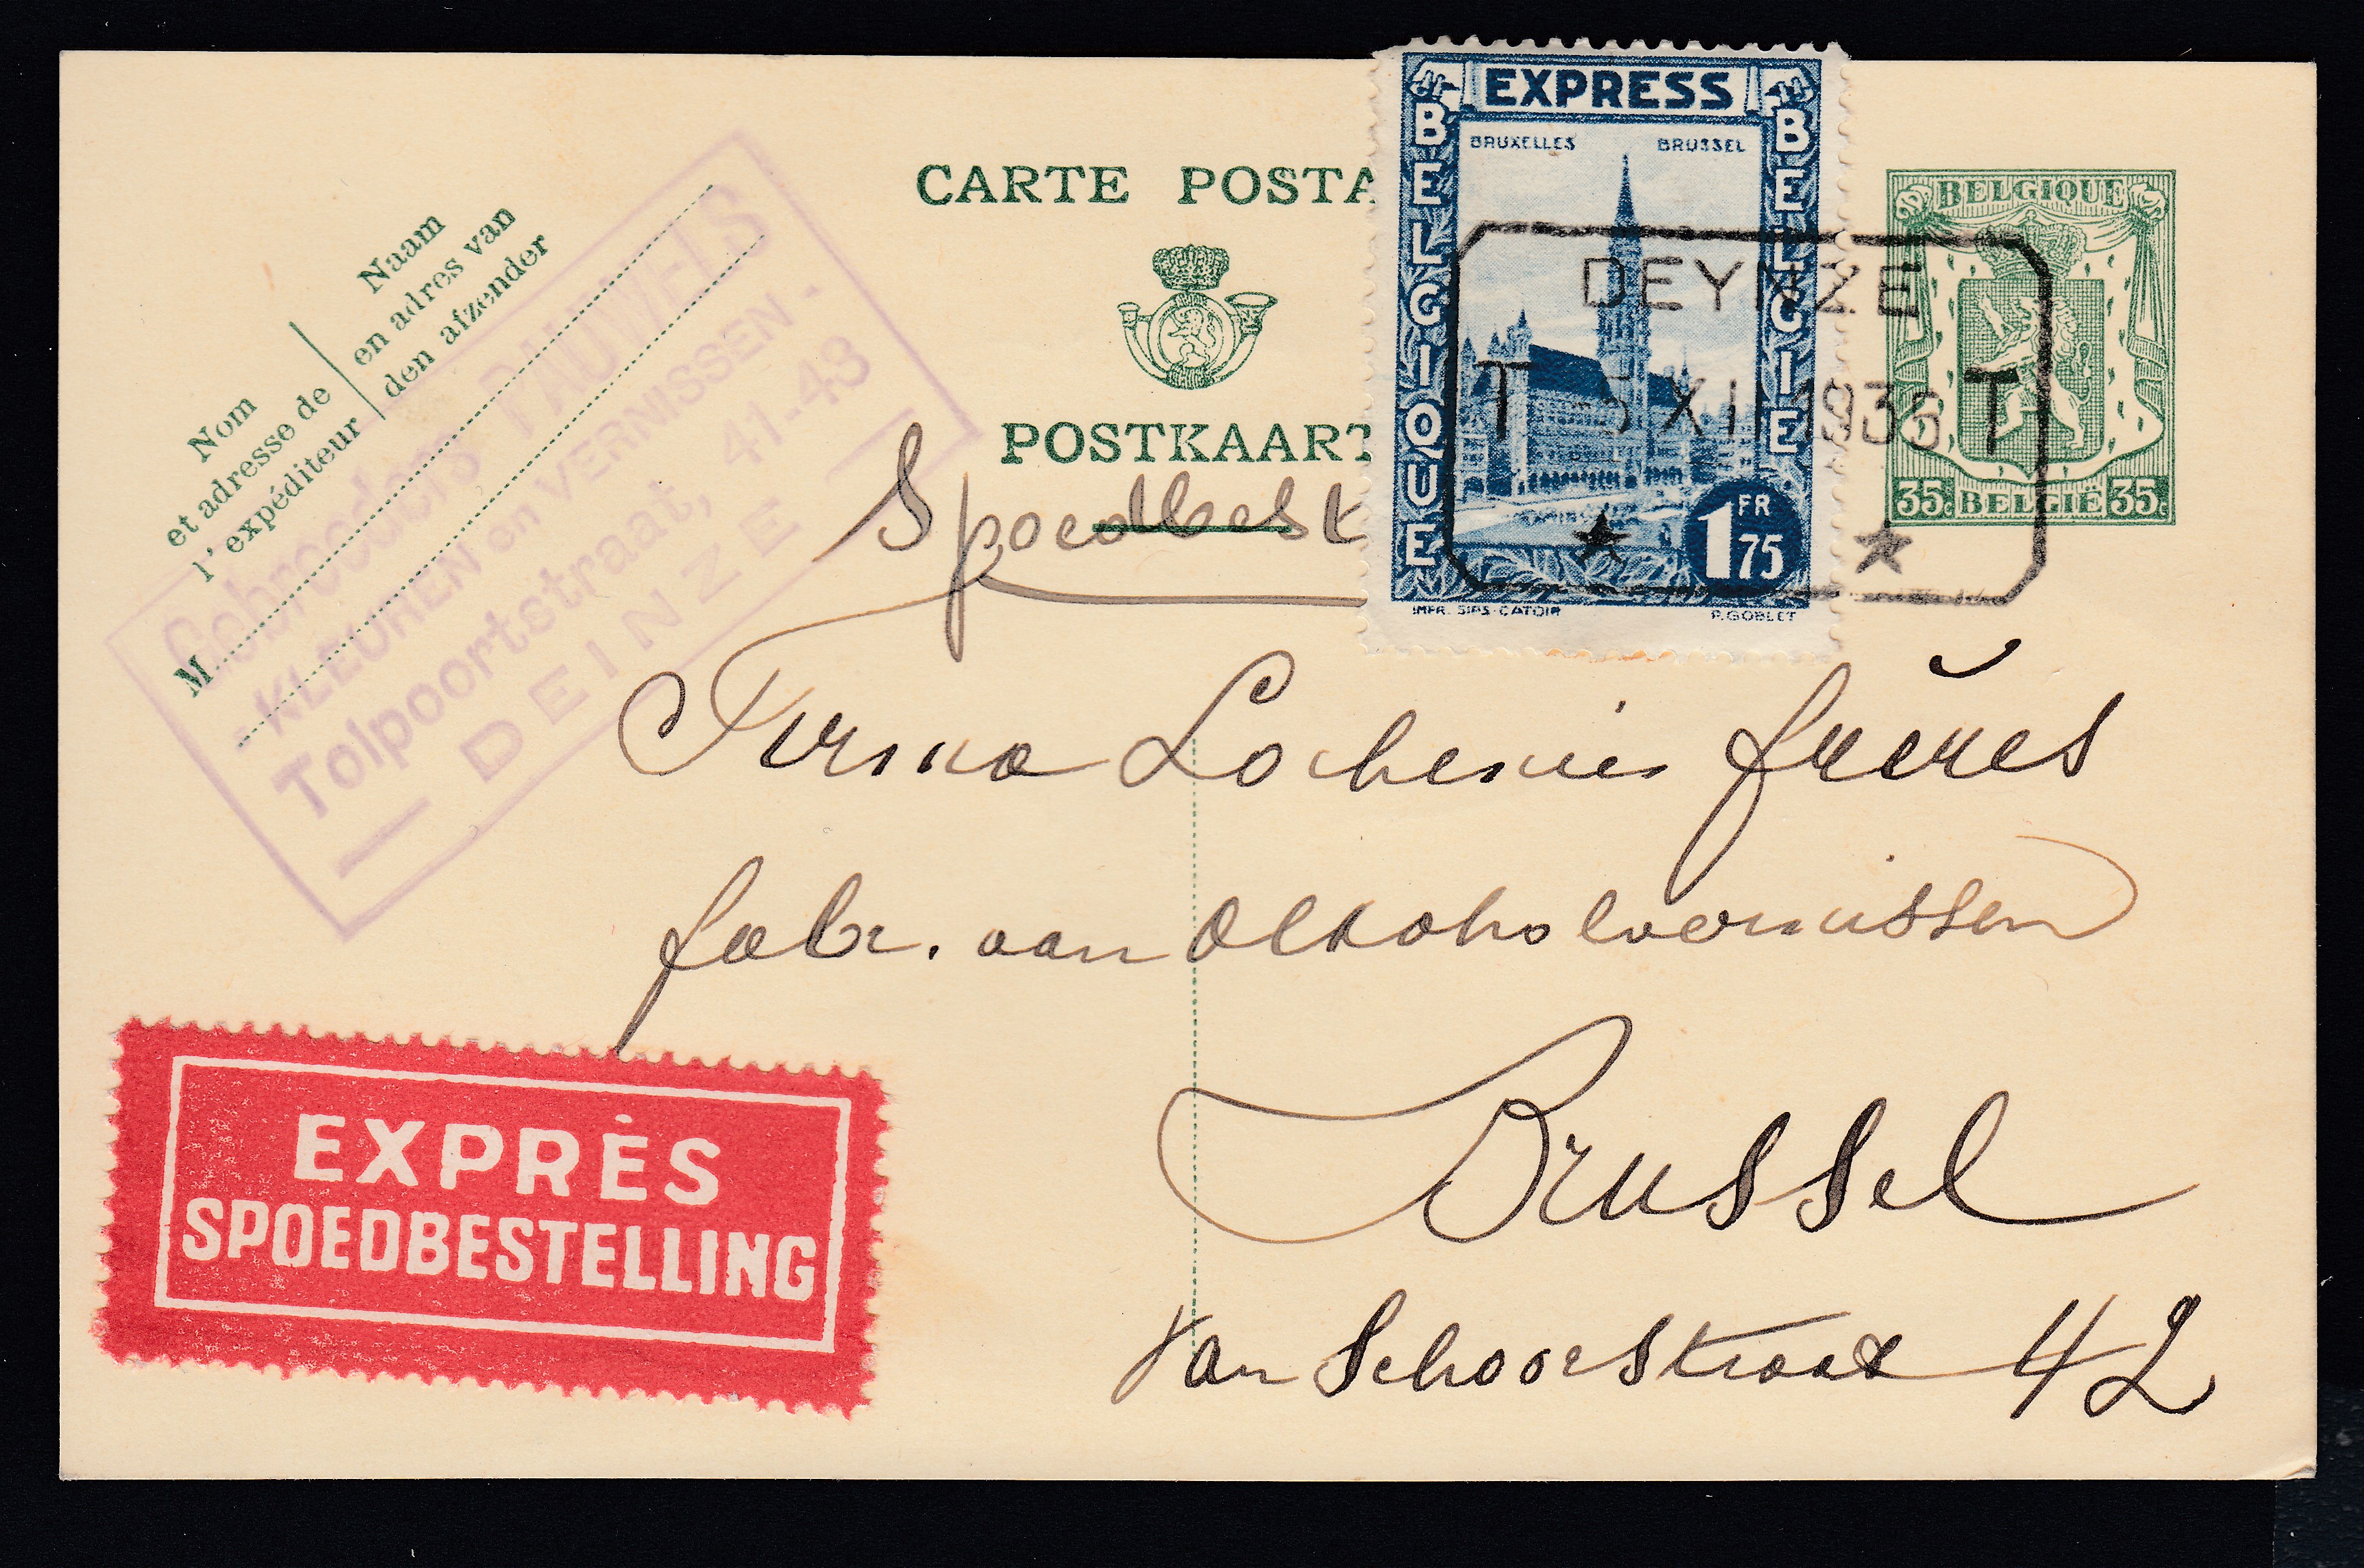 CARTE POSTA
POSTKAART
Nom
et adresse de
l'expéditeur
Naam
en adres van
den afzender
M
Gebroeders PAUWELS
- KLEUREN en VERNISSEN -
Tolpoortstraat, 41-43
— DEINZE —
EXPRESS
BRUXELLES BRUSSEL
BELGIQUE
BELGIE
1 FR 75
IMPR. SIPS-CATOIR P. GOBLET
BELGIQUE
35c BELGIË 35c
DEYNZE
T -5 XI 1936 T
Spoedbest
Firma frères
fabr. van alkoholvernissen
Brussel
Van Schoorstraat 42
EXPRÈS
SPOEDBESTELLING